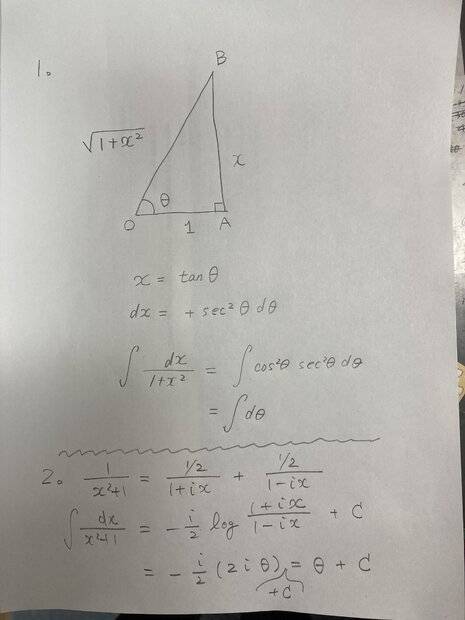 1。
B
√(1+x²)
x
θ
O 1 A
x = tanθ
dx = + sec²θ dθ
∫ dx/(1+x²) = ∫ cos²θ sec²θ dθ
= ∫ dθ
2。 1/(x²+1) = (1/2)/(1+ix) + (1/2)/(1-ix)
∫ dx/(x²+1) = - i/2 log (1+ix)/(1-ix) + C
= - i/2 (2iθ) = θ + C
+C